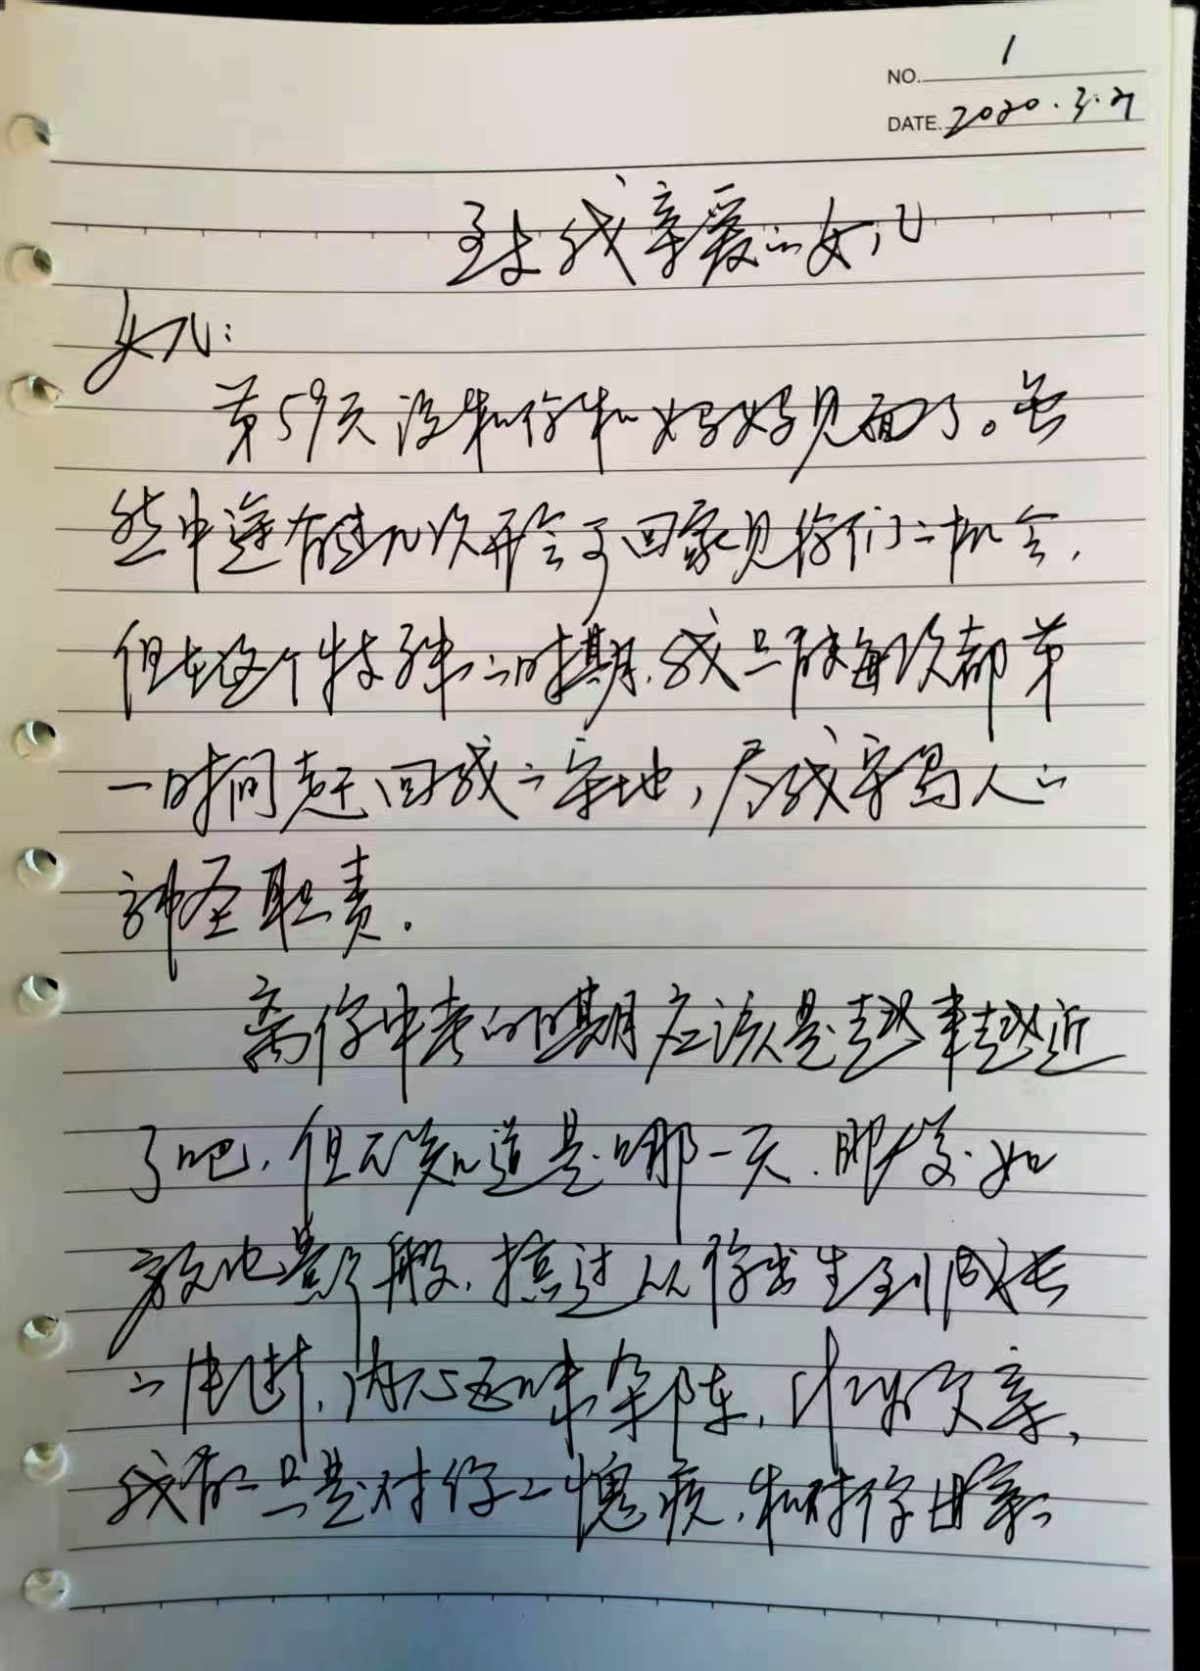 NO. 1
DATE. 2020.3.21
致我亲爱的女儿
女儿:
第59天没和你和妈妈见面了。虽
然中途有过几次开会可回家见你们的机会,
但在这个特殊的时期,我只能每次都第
一时间赶回我的守地,尽我守岛人的
神圣职责.
离你中考的日期应该是越来越近
了吧,但不知道是哪一天.那天
电影般,掠过从你出生到成长
的,内心五味杂陈,父亲,
我有的只是对你的愧疚,和对你母亲的